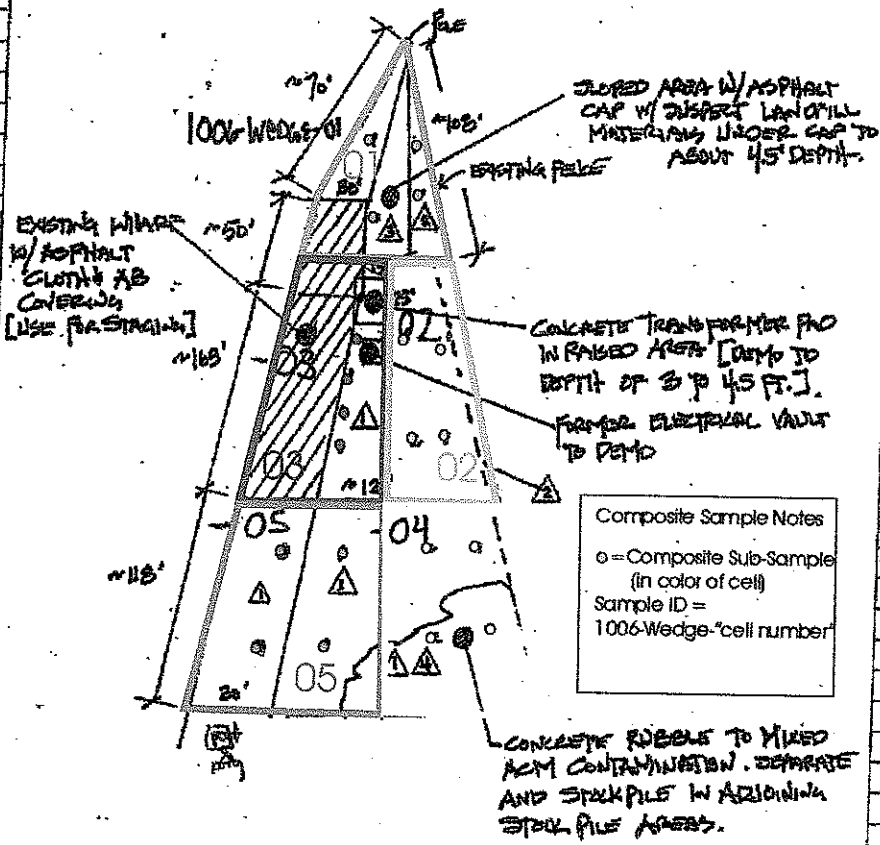 POLE
~70'
1006-WEDGE-01
~108'
SLOPED AREA W/ ASPHALT
CAP W/ SUSPECT LANDFILL
MATERIALS UNDER CAP TO
ABOUT 4.5' DEPTH.
EXISTING FENCE
01
30'
~50'
EXISTING
W/ ASPHALT
CLOTH & AB
COVERING
[USE FOR STAGING]
02
CONCRETE TRANSFORMER PAD
IN RAISED AREA [DEMO TO
DEPTH OF 3 TO 4.5 FT.].
~165'
03
1
FORMER ELECTRICAL VAULT
TO DEMO
03
~12
02
2
05
04
~118'
1
1
1
4
20'
05
Composite Sample Notes
o = Composite Sub-Sample
(in color of cell)
Sample ID =
1006-Wedge-"cell number"
CONCRETE RUBBLE TO MIXED
ACM CONTAMINATION. SEPARATE
AND STOCKPILE IN ADJOINING
STOCK PILE AREAS.